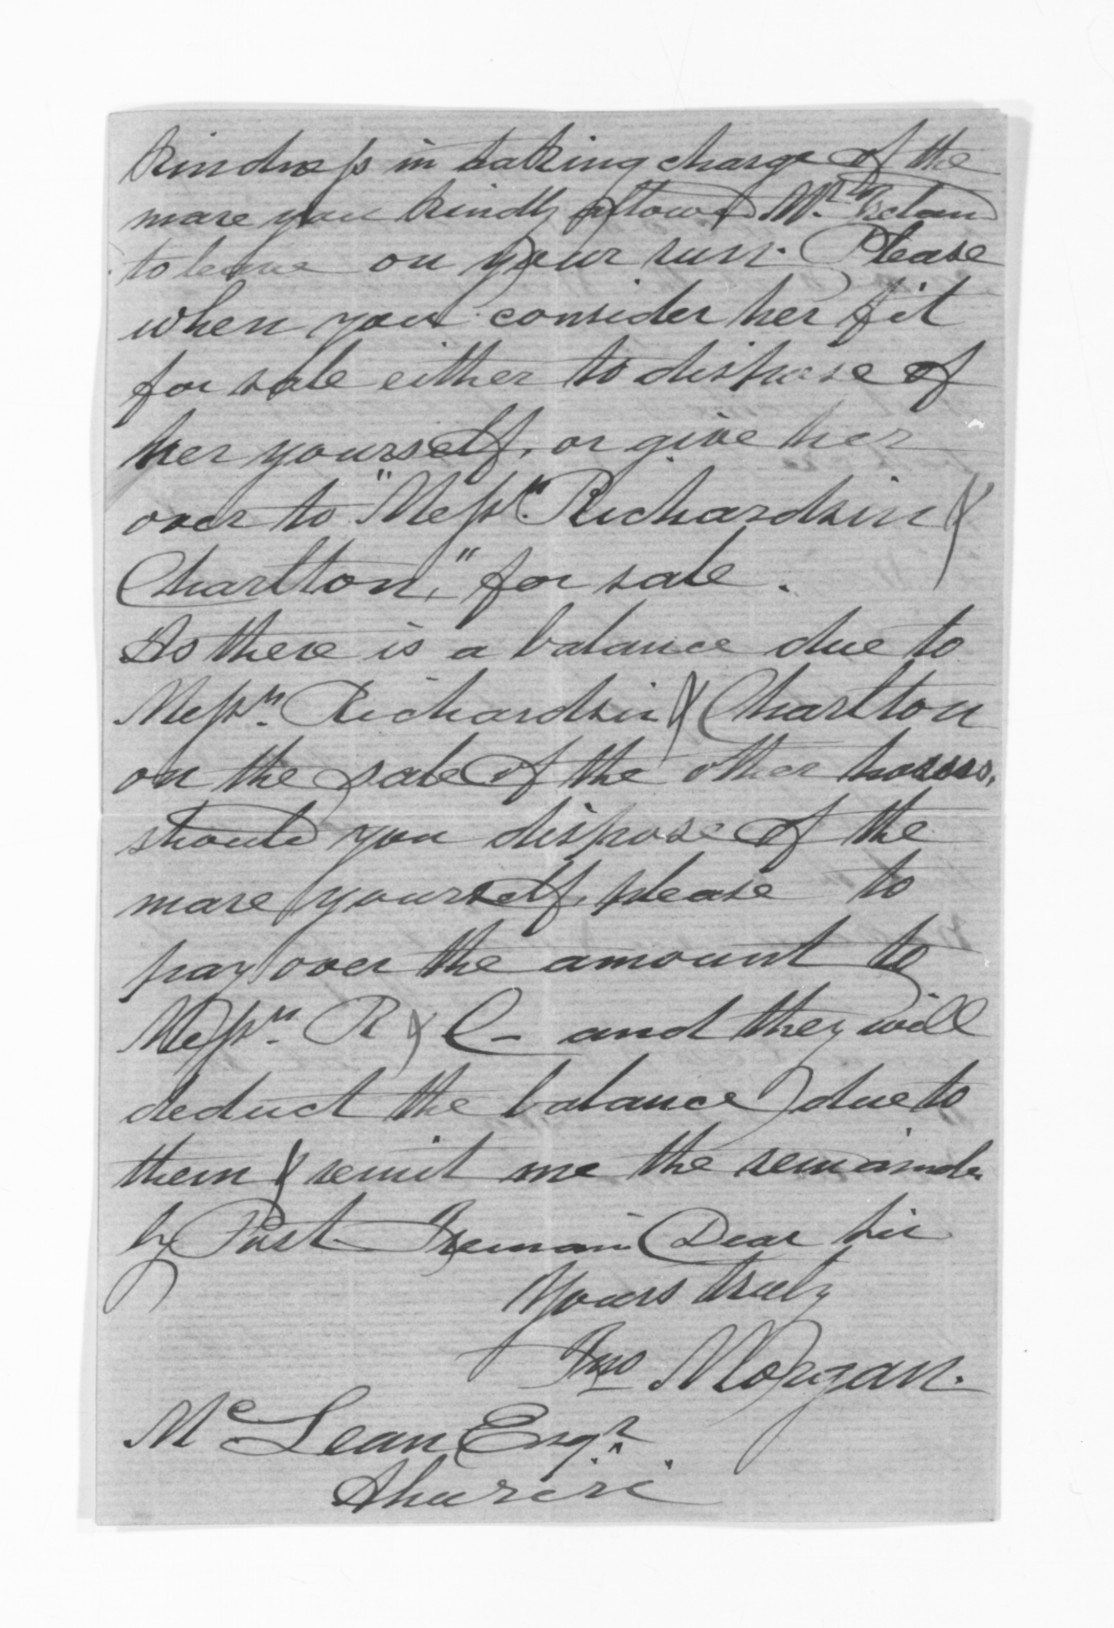 kindness in taking charge of the
mare you kindly allowed Mr.
to leave on your run. Please
when you consider her fit
for sale either to dispose of
her yourself, or give her
over to "Messrs. Richardson &
Charlton," for sale.
As there is a balance due to
Messrs. Richardson & Charlton
on the sale of the other horses,
should you dispose of the
mare yourself, please to
pay over the amount to
Messrs. R & C - and they will
deduct the balance due to
them & remit me the remainde
by Post I remain Dear Sir
Yours truly
Jno Morgan.
Mc Lean Esqr.
Ahuriri